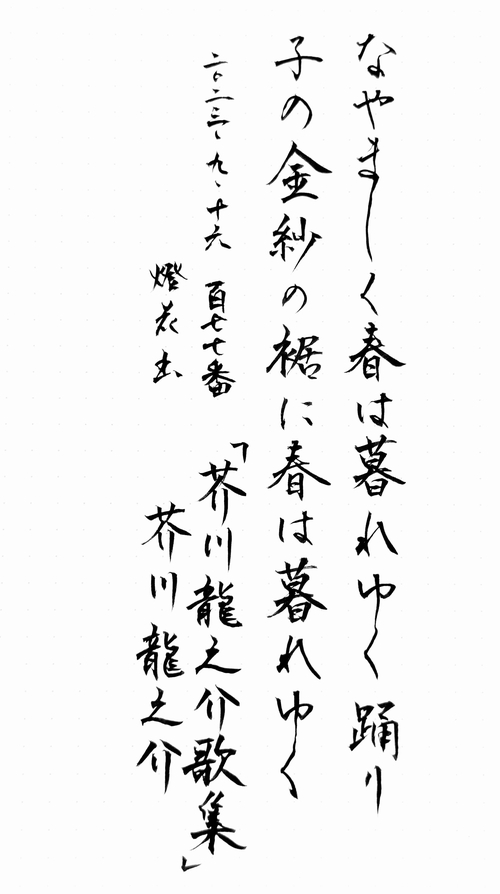 なやましく春は暮れゆく踊り
子の金紗の裾に春は暮れゆく
二〇二三、九、十六 百七七番 「芥川龍之介歌集」
燈花書 芥川龍之介